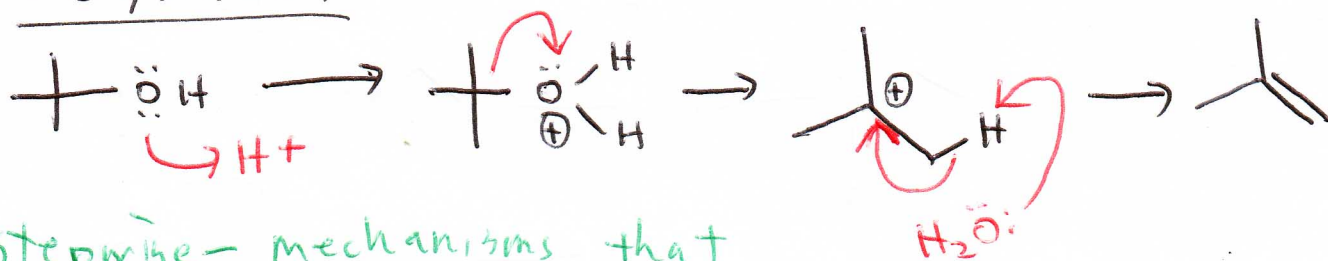 ÖH
H+
O H
⊕ H
⊕
H
H2O:
mechanisms that